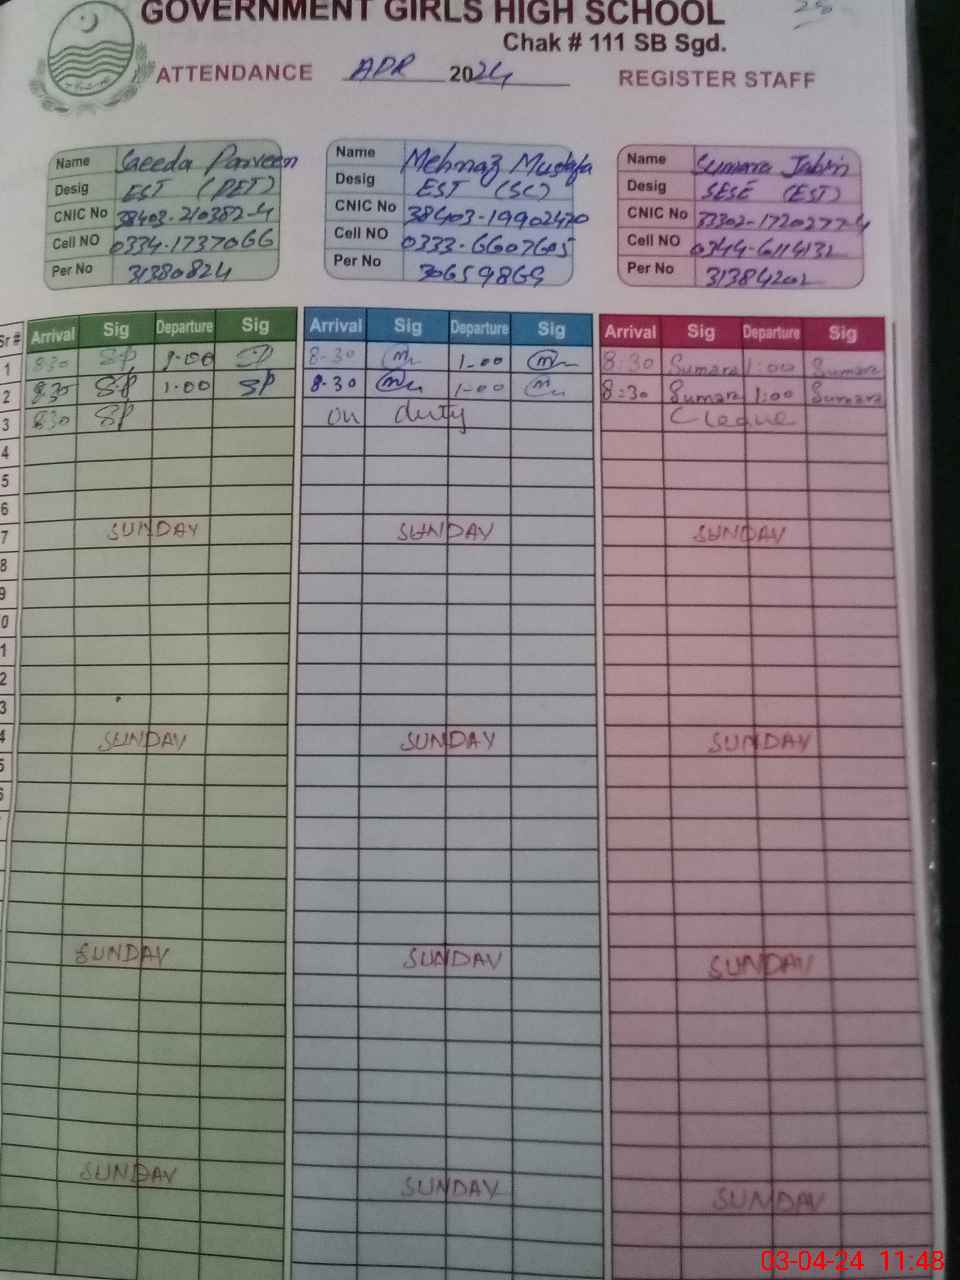 GOVERNMENT GIRLS HIGH SCHOOL
Chak # 111 SB Sgd.
ATTENDANCE APR 2024 REGISTER STAFF
Name Saeeda Parveen
Desig EST (PET)
CNIC No 38403-210382-4
Cell NO 0334-1737066
Per No 31380824
Name Mehnaz Mustafa
Desig EST (SC)
CNIC No 38403-19902420
Cell NO 0333-6607605
Per No 30659869
Name Sumara Jabin
Desig SESE (EST)
CNIC No 33302-1720277-4
Cell NO 0344-6114132
Per No 31384202
Sr # Arrival Sig Departure Sig Arrival Sig Departure Sig Arrival Sig Departure Sig
1 8:30 SP 1:00 SP 8-30 1-00 8:30 Sumara 1:00 Sumara
2 8:30 SP 1:00 SP 8-30 1-00 8:30 Sumara 1:00 Sumara
3 830 SP on duty C leave
4
5
6
7 SUNDAY SUNDAY SUNDAY
8
9
0
1
2
3
4 SUNDAY SUNDAY SUNDAY
5
6
SUNDAY SUNDAY SUNDAY
SUNDAY SUNDAY SUNDAY
03-04-24 11:48